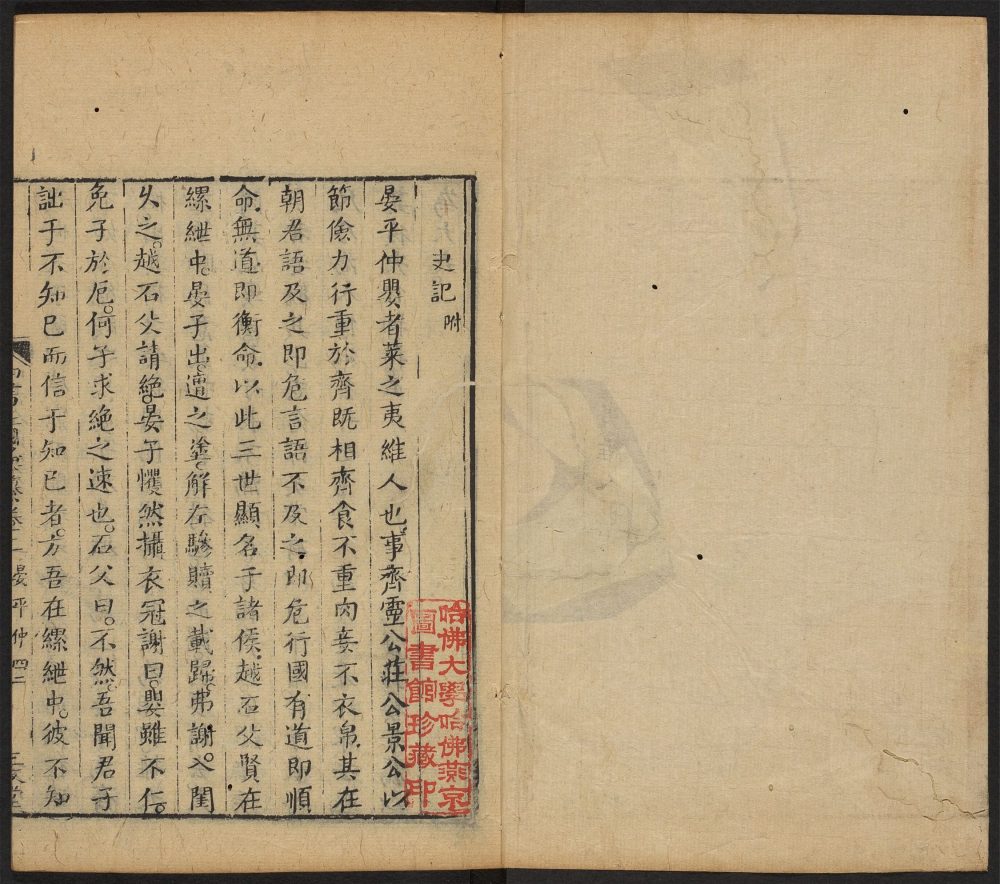 史記 附
晏平仲嬰者萊之夷維人也事齊靈公莊公景公以
節儉力行重於齊既相齊食不重肉妾不衣帛其在
朝君語及之即危言語不及之即危行國有道即順
命無道即衡命以此三世顯名于諸侯越石父賢在
縲紲中晏子出遭之塗解左驂贖之載歸弗謝入閨
乆之越石父請絶晏子懼然攝衣冠謝曰嬰雖不仁
免子於厄何子求絶之速也石父曰不然吾聞君子
詘于不知已而信于知已者方吾在縲紲中彼不知
卷三 晏平仲 四二
哈佛大學哈佛燕京
圖書館珍藏印